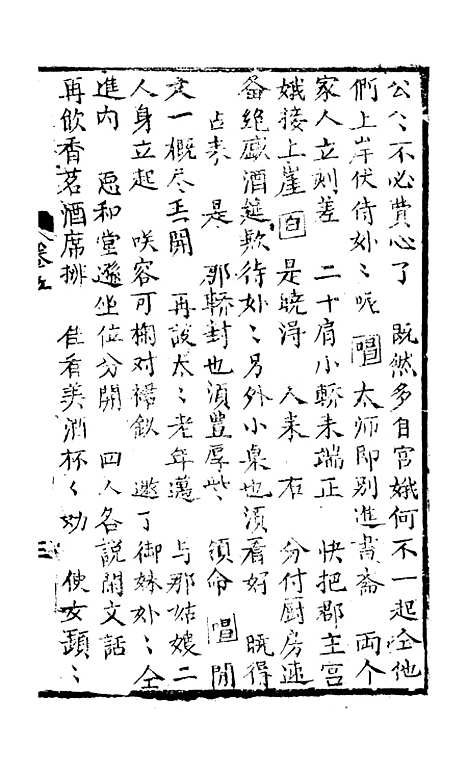 公〻不必費心了　既然多自宮娥何不一起仝他
們上岸伏侍妙〻呢　唱　太师即别進書斋　両个
家人立刻差　二十肩小轎未端正　快把郡主宫
娥接上崖　白　是暁淂　人来　有　分付厨房速
备絶盛酒筵欵待妙〻另外小桌也湏看好　既得
占来　是　那轎封也湏豊厚些　領命　唱　閒
文一概尽丢開　再説太〻老年邁　与那姑娘二
人身立起　咲容可掬对裙釵　邀了御妹妙〻仝
進内　忠和堂遜坐位分開　四人各説閑文話
再飲香茗酒席排　佳肴美酒杯〻劝　使女頭〻
卷五
三